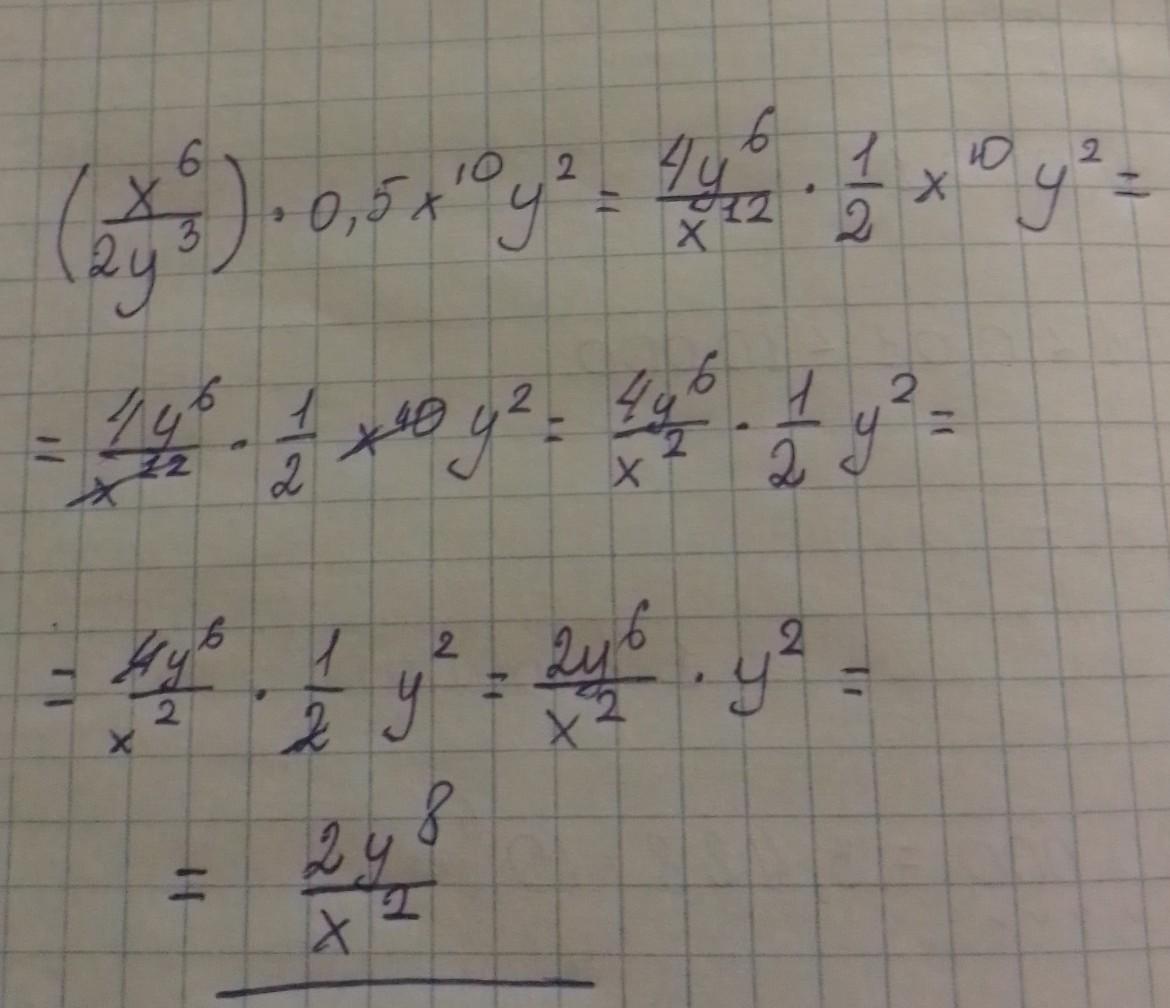 (x⁶/2y³) · 0,5x¹⁰y² = 4y⁶/x¹² · 1/2 x¹⁰ y² =
= 4y⁶/x¹² · 1/2 x¹⁰ y² = 4y⁶/x² · 1/2 y² =
= 4y⁶/x² · 1/2 y² = 2y⁶/x² · y² =
= 2y⁸/x²